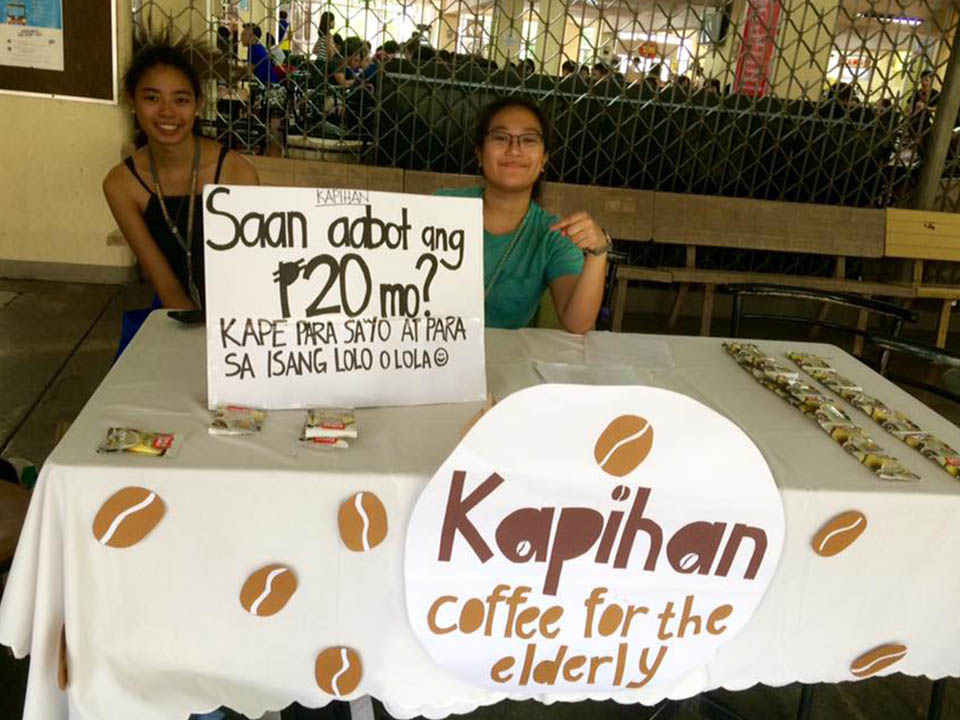 KAPIHAN
Saan aabot ang
₱20 mo?
KAPE PARA SA'YO AT PARA
SA ISANG LOLO O LOLA☺
Kapihan
coffee for the
elderly